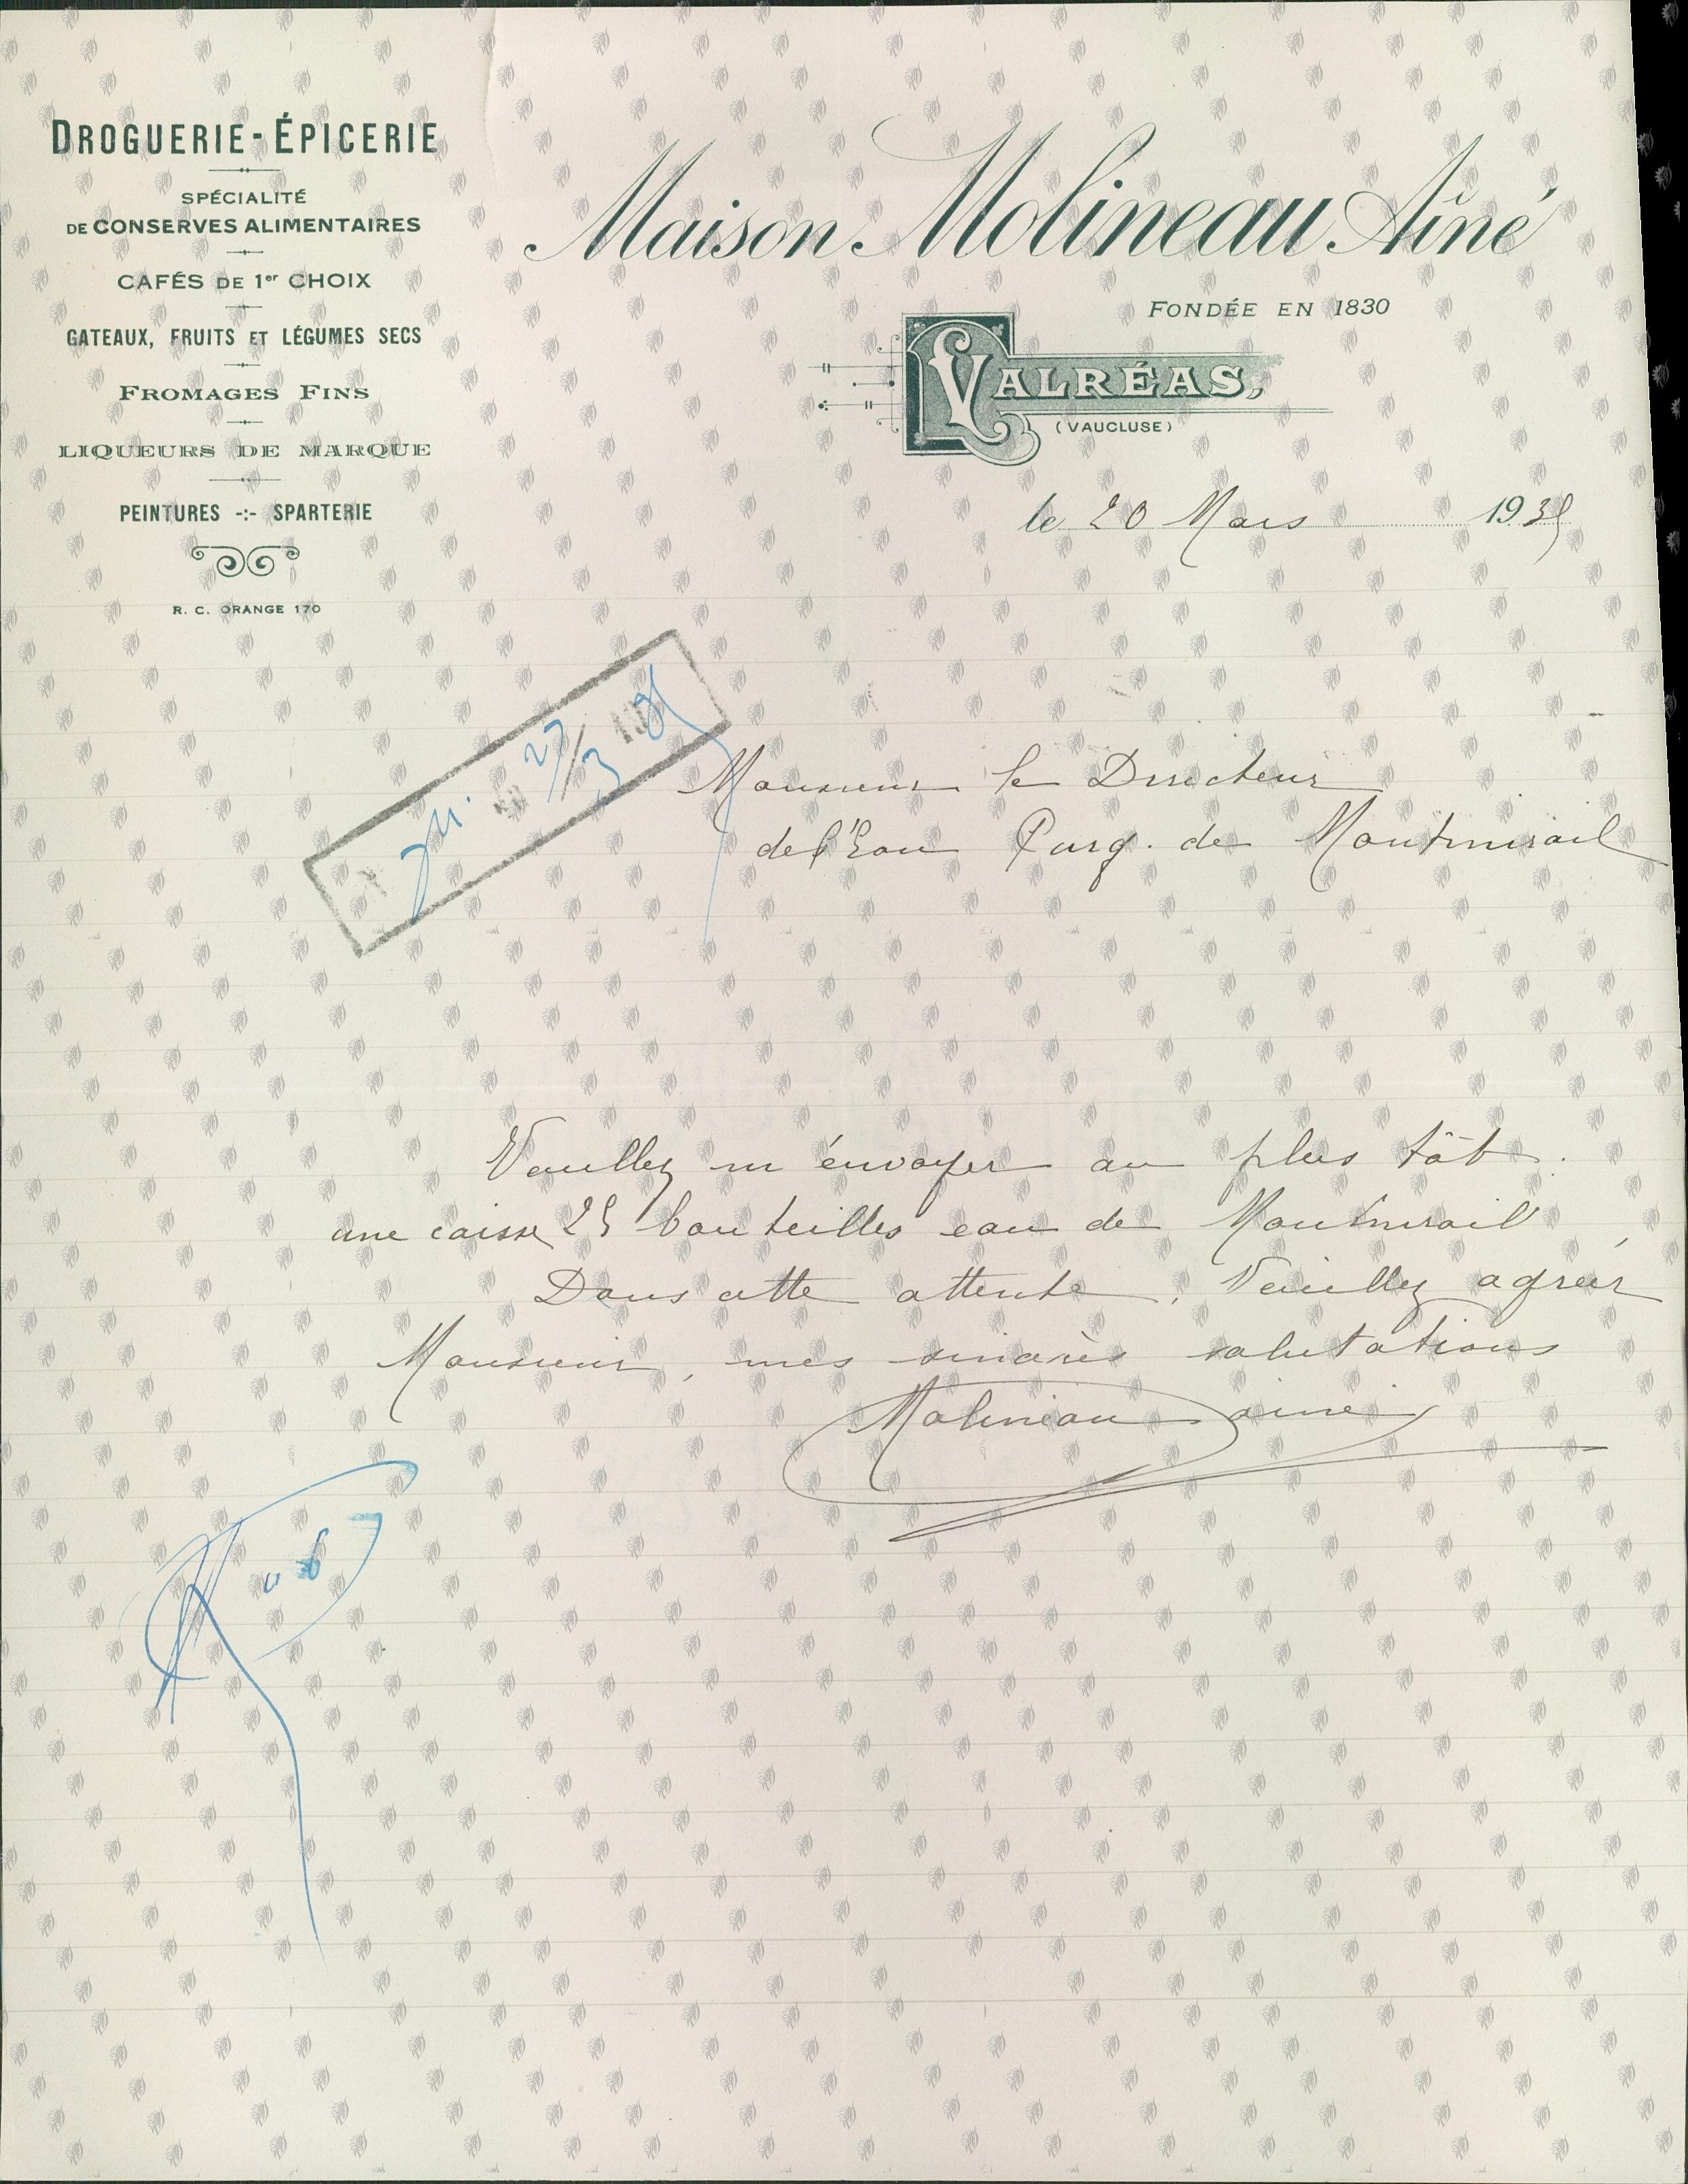 DROGUERIE-ÉPICERIE
SPÉCIALITÉ
DE CONSERVES ALIMENTAIRES
CAFÉS DE 1er CHOIX
GATEAUX, FRUITS ET LÉGUMES SECS
FROMAGES FINS
LIQUEURS DE MARQUE
PEINTURES -:- SPARTERIE
R. C. ORANGE 170
Maison Molineau Aîné
FONDÉE EN 1830
VALRÉAS,
(VAUCLUSE)
le 20 Mars 1935
27/3 35
Monsieur le Directeur
de l'Eau Purg. de Montmirail
Veuillez m'envoyer au plus tôt
une caisse 25 bouteilles eau de Montmirail,
Dans cette attente, Veuillez agréer
Monsieur, mes sincères salutations
Molineau ainé